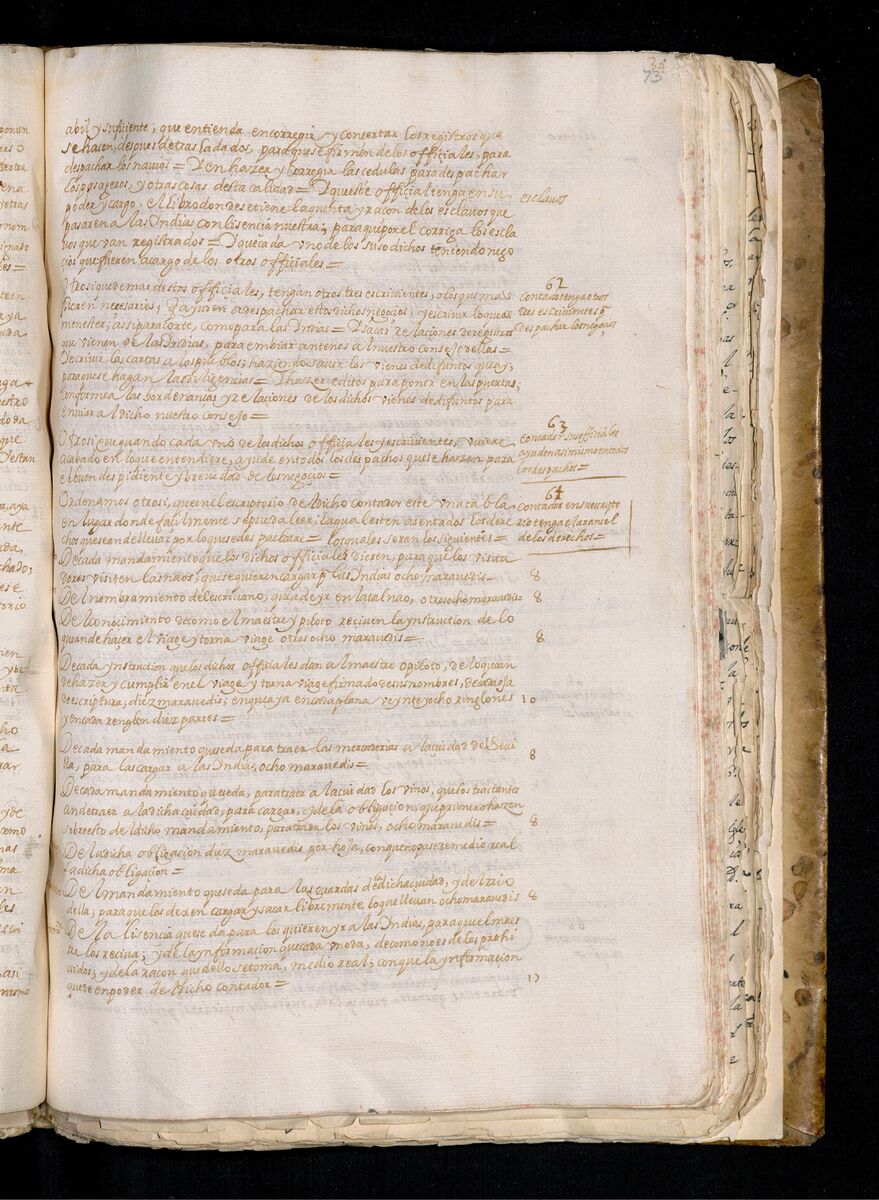 73
abil y suficiente, que entienda en corregir y concertar los registros que
se hacen, despues de trasladados, para que se firmen de los officiales, para
despachar los navios = Y en hazer y corregir las cedulas para despachar
los pasageros, y otras cosas desta calidad = Y que este official tenga en su
poder y cargo, el libro donde se tiene la quenta y racon de los esclavos que
esclavos
pasaren a las Indias con lisencia nuestra; para que por el corriga los escla
vos que van registrados = Y que cada vno de los suso dichos teniendo nego
cios que fueren a cargo de los otros officiales =
Otrosi que demas destos officiales, tengan otros tres escrivientes, o los que mas
62
fueren necesarios; para ayuden a despachar estos dichos negocios, y escrivir lo que es
contador tenga otros
tres escrivientes
menester, asi para la corte, como para las Indias = Y sacar relaciones de registros
despachar los negocios
que vienen de las Indias, para embiar antenos al nuestro Consejo dellas =
Y escrivir las cartas a los pueblos; haziendo saver los vienes de difuntos que ay;
para que se hagan las diligencias = Y hazer editos para poner en las puertas;
conforme a las hordenanças y relaciones de los dichos vienes de difuntos para
enviar al dicho nuestro consejo =
Otrosi que quando cada vno de los dichos officiales y escrivientes, oviere
63
contador sus officiales
acabado en lo que entendiere, ayude en todos los despachos que se harzen para
ayuden asi mismo en todos
el buen despidiente y brevedad de los negocios =
los despachos =
Ordenamos otrosi, que en el escriptorio del dicho contador este vna tabla
64
en lugar donde facilmente se pueda leer; la qual esten asentados los dere
contador en su escripto
rio tenga el aransel
chos que se an de llevar por lo que se despachare = los quales seran los siguientes =
de los derechos =
De cada mandamiento que los dichos officiales dieren, para que los visita
dores visiten las naos; que se quieren cargar para las Indias ocho maravedis =
8
Del nombramiento del escrivano, que a de yr en la tal nao, otros ocho maravedis =
8
Del conocimiento de como el maestre y piloto reciven la ynstruction de lo
que an de haçer el viage y torna viage otros ocho maravedis =
8
De cada ynstruction que los dichos officiales dan al maestre o piloto, de lo que an
de hazer y cumplir en el viage y torna viage firmado de sus nombres, de cada oja
de escriptura; diez maravedis; en que aya en cada plana veynte y ocho ringlones
10
y en cada renglon diez partes =
De cada mandamiento que se da para traer las mercaderias a la ciudad de Sevi
lla, para las cargar a las Indias, ocho maravedis =
8
De cada mandamiento que se da, para traer a la ciudad los vinos, que los tratantes
an de traer a la dicha ciudad, para cargar, y de la obligacion, que primero hazen
sobre esto del dicho mandamiento, para traer los vinos, ocho maravedis =
8
De la dicha obligacion diez maravedis por hoja, con que no pase de medio real
la dicha obligacion =
Del mandamiento que se da para las guardas de la dicha ciudad, y del rio
della; para que los dexen cargar y sacar libremente lo que llevan ocho maravedis
8
De la lisencia que se da para los que quieren yr a las Indias, para que el maes
tre los reciva; y de la ynformacion que cada vno da, de como no es de los prohi
vidos; y de la racon que dello se toma, medio real; con que la ynformacion
quede en poder del dicho contador =
17